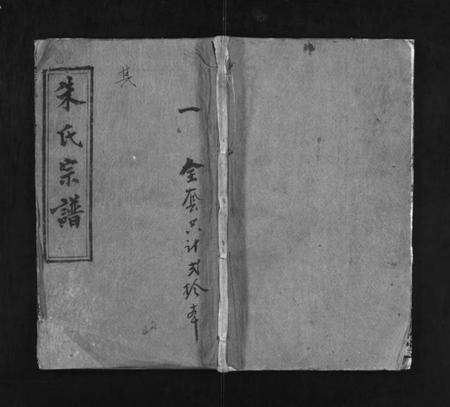 朱氏宗譜
一
全套共計弍拾本